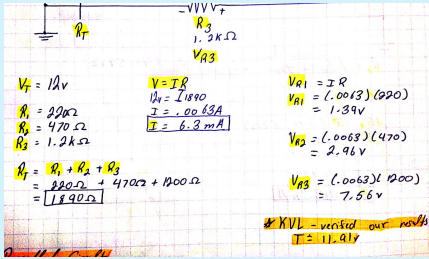 - +
R3
1.2kΩ
VR3
RT
VT = 12v
R1 = 220Ω
R2 = 470Ω
R3 = 1.2kΩ
RT = R1 + R2 + R3
= 220Ω + 470Ω + 1200Ω
= 1890Ω
V = IR
12v = I 1890
I = .0063A
I = 6.3mA
VR1 = IR
VR1 = (.0063)(220)
= 1.39v
VR2 = (.0063)(470)
= 2.96v
VR3 = (.0063)(1200)
= 7.56v
* KVL - verified our results
T = 11.91v